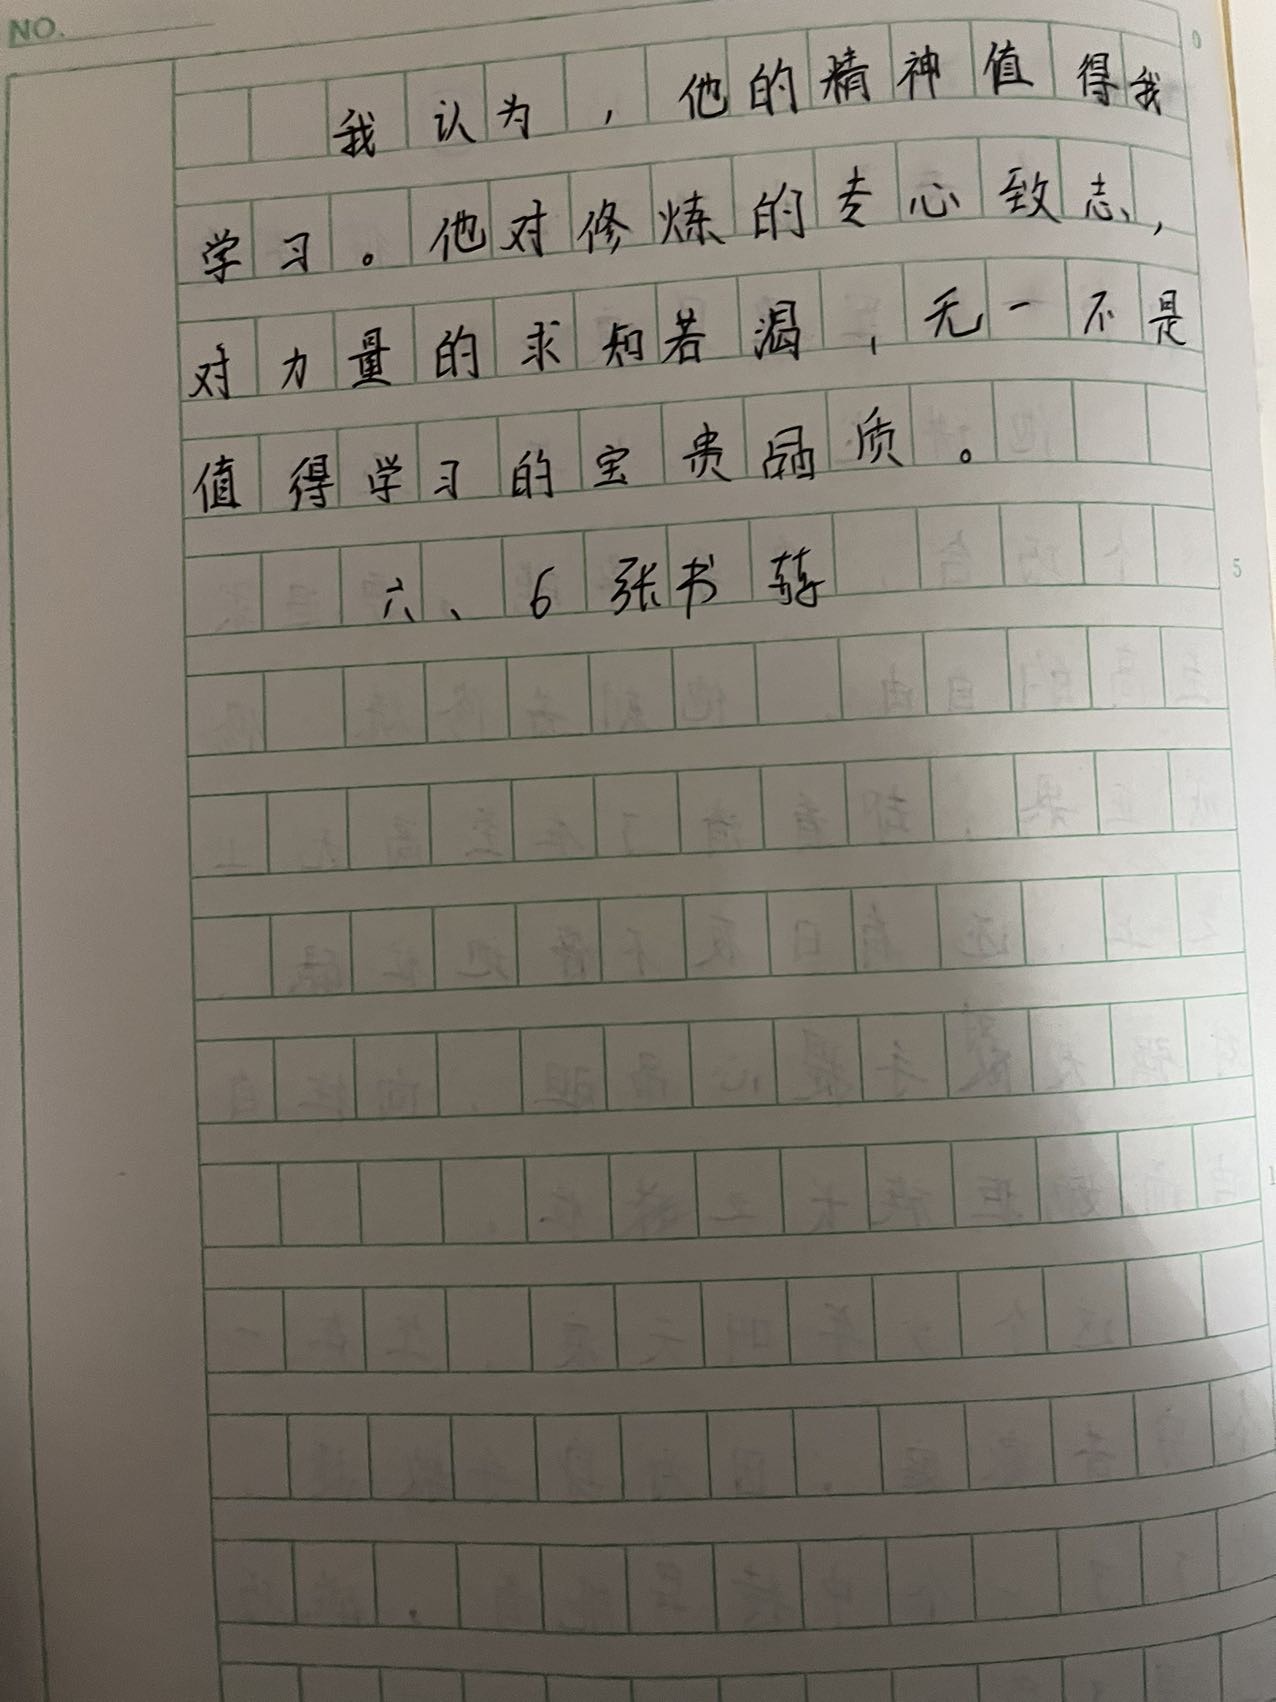 NO.
我认为，他的精神值得我
学习。他对修炼的专心致志，
对力量的求知若渴，无一不是
值得学习的宝贵品质。
六、6 张书
5